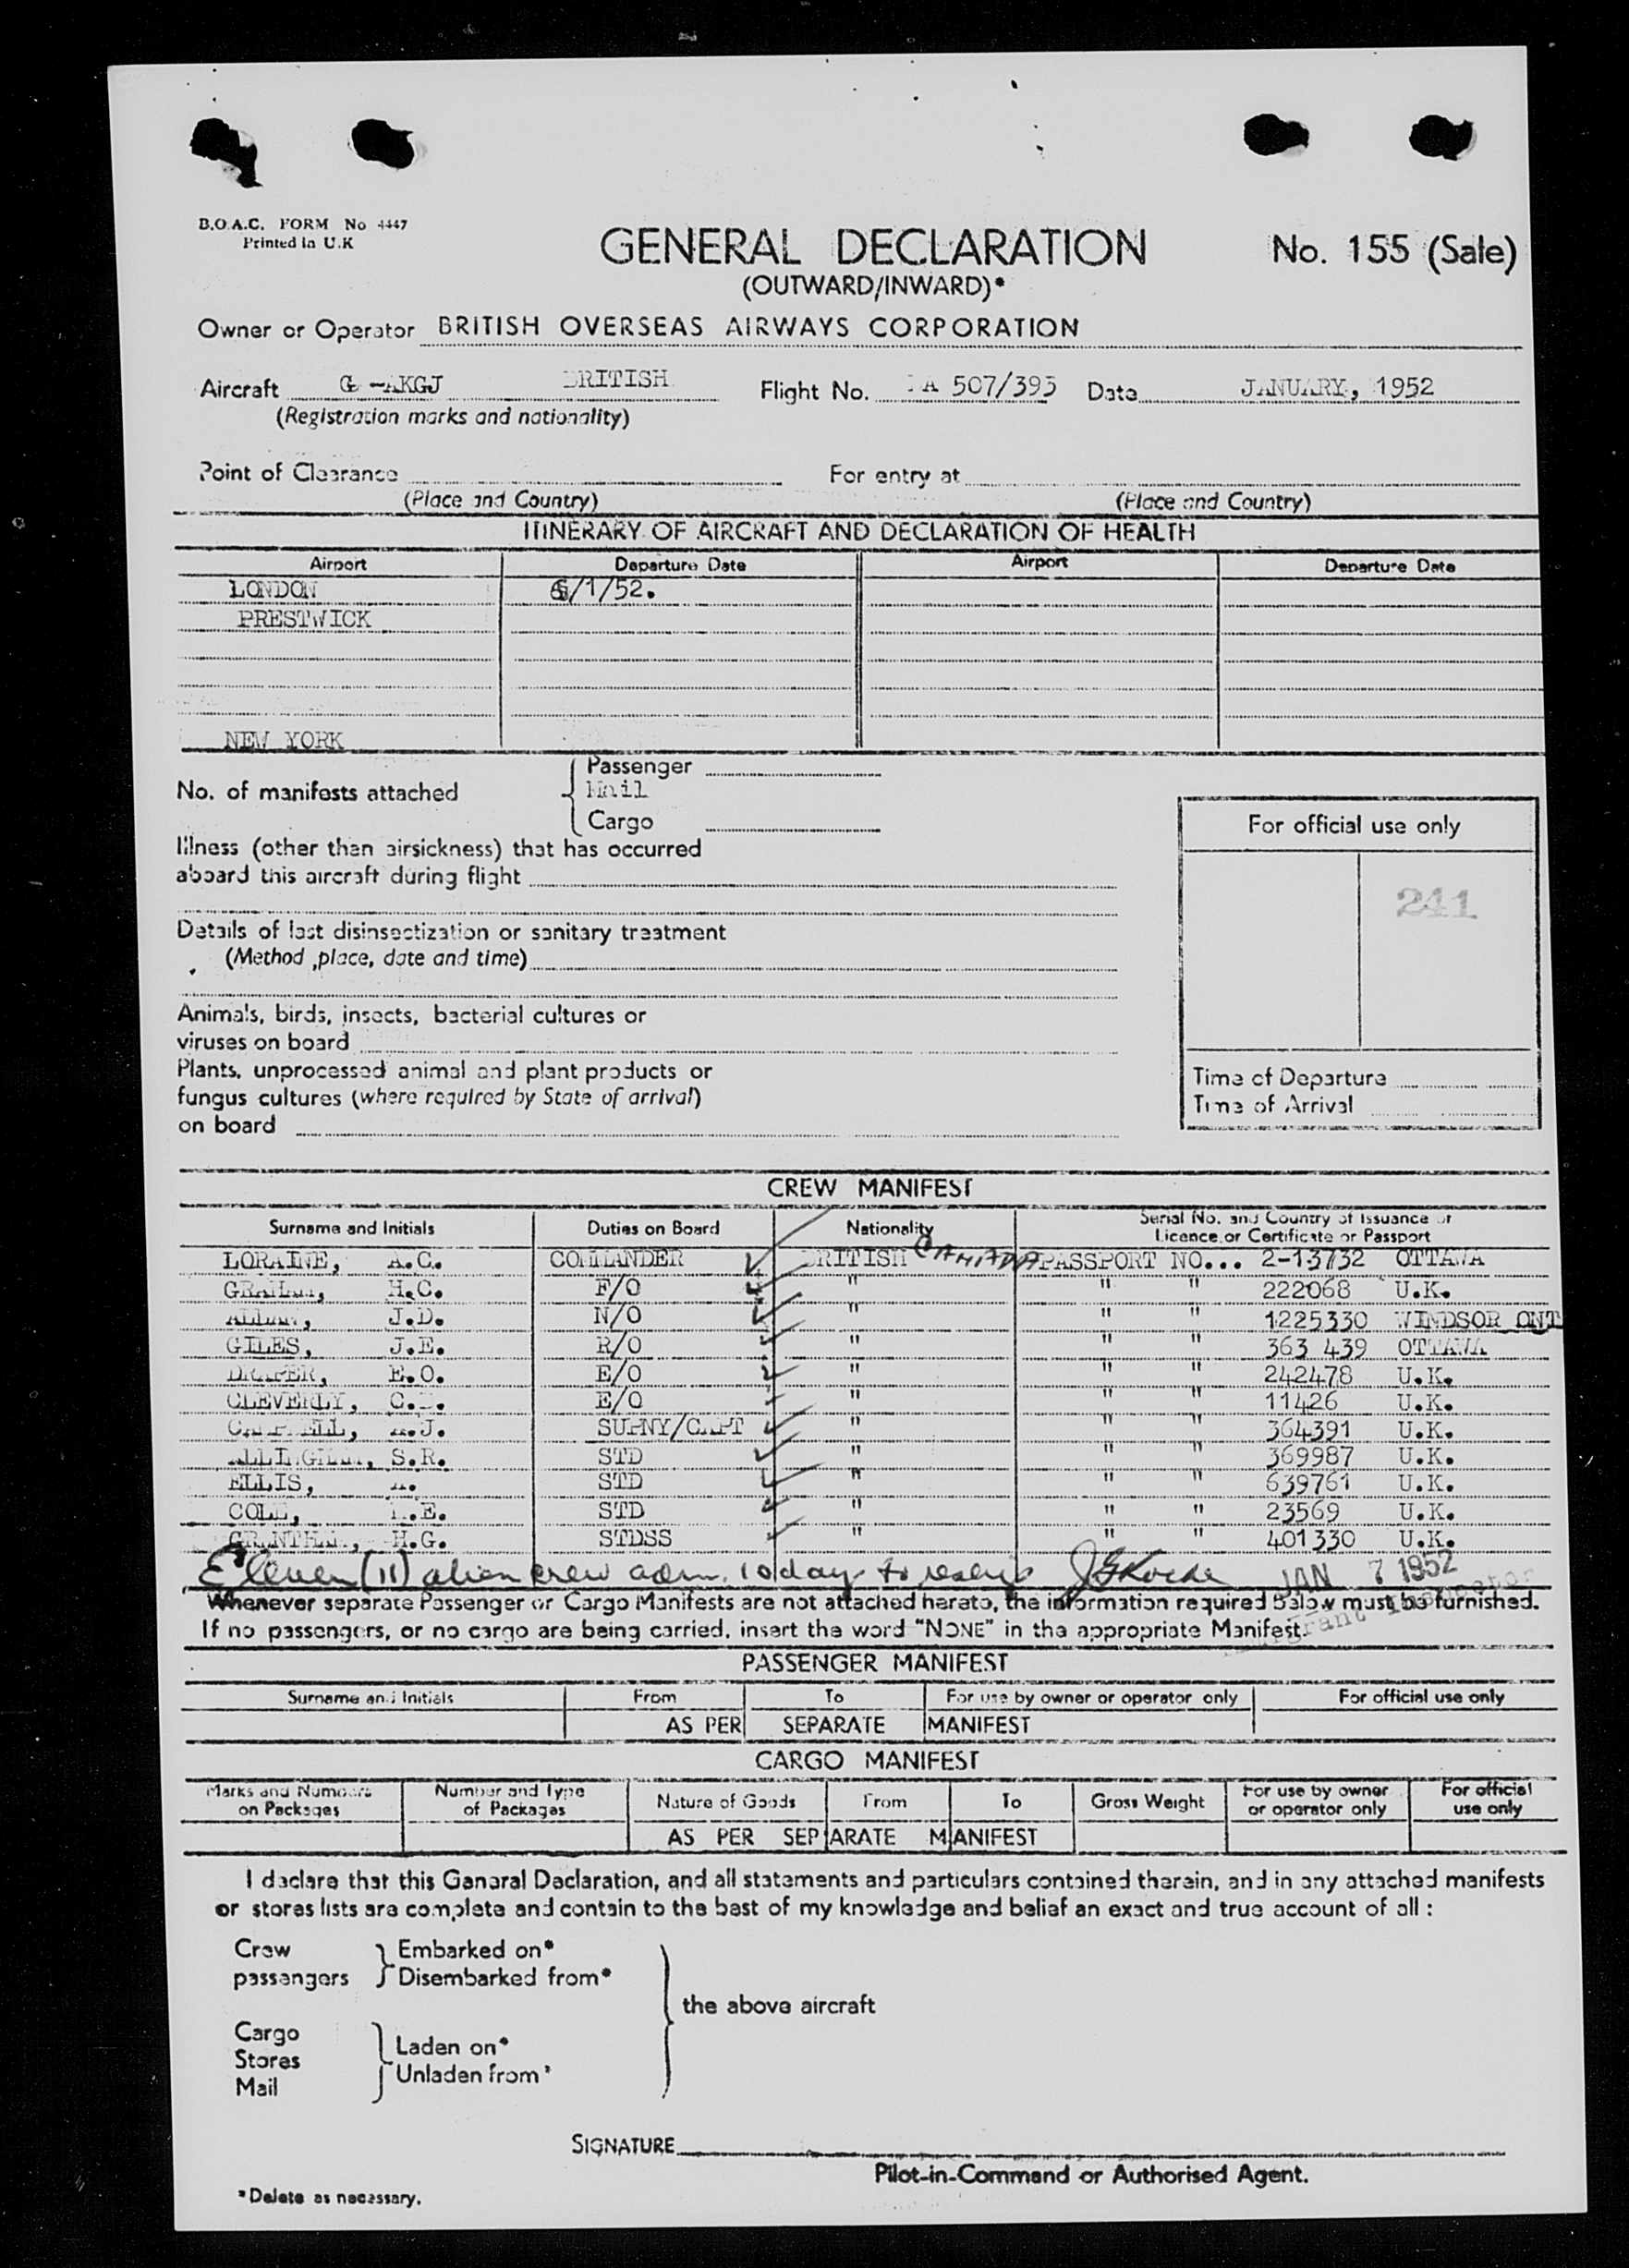 B.O.A.C. FORM No 4447
Printed in U.K
GENERAL DECLARATION No. 155 (Sale)
(OUTWARD/INWARD)*
Owner or Operator BRITISH OVERSEAS AIRWAYS CORPORATION
Aircraft G-AKGJ BRITISH Flight No. BA 507/393 Date JANUARY, 1952
(Registration marks and nationality)
Point of Clearance For entry at
(Place and Country) (Place and Country)
ITINERARY OF AIRCRAFT AND DECLARATION OF HEALTH
Airport Departure Date Airport Departure Date
LONDON 6/1/52.
PRESTWICK
NEW YORK
Passenger
No. of manifests attached Mail
Cargo
For official use only
Illness (other than airsickness) that has occurred
aboard this aircraft during flight
241
Details of last disinsectization or sanitary treatment
(Method ,place, date and time)
Animals, birds, insects, bacterial cultures or
viruses on board
Plants, unprocessed animal and plant products or
fungus cultures (where required by State of arrival)
on board
Time of Departure
Time of Arrival
CREW MANIFEST
Surname and Initials Duties on Board Nationality Serial No. and Country of Issuance of
Licence or Certificate or Passport
LORAINE, A.C. COMMANDER BRITISH CANADA PASSPORT NO... 2-13732 OTTAWA
GRAHAM, H.C. F/O " " " 222068 U.K.
ALLAN, J.D. N/O " " " 1225330 WINDSOR ONT
GILES, J.E. R/O " " " 363 439 OTTAWA
DRAPER, E.O. E/O " " " 242478 U.K.
CLEVERLY, C. E/O " " " 11426 U.K.
CAMPBELL, J. SUPNY/CAPT " " " 364391 U.K.
S.R. STD " " " 369987 U.K.
ELLIS, STD " " " 639761 U.K.
COLE, E. STD " " " 23569 U.K.
GRANTHAM, H.G. STDSS " " " 401330 U.K.
Eleven (11) alien crew adm. 10 days to JAN 7 1952
Whenever separate Passenger or Cargo Manifests are not attached hereto, the information required below must be furnished.
If no passengers, or no cargo are being carried, insert the word "NONE" in the appropriate Manifest.
PASSENGER MANIFEST
Surname and Initials From To For use by owner or operator only For official use only
AS PER SEPARATE MANIFEST
CARGO MANIFEST
Marks and Numbers on Packages Number and Type of Packages Nature of Goods From To Gross Weight For use by owner or operator only For official use only
AS PER SEPARATE MANIFEST
I declare that this General Declaration, and all statements and particulars contained therein, and in any attached manifests
or stores lists are complete and contain to the best of my knowledge and belief an exact and true account of all :
Crew Embarked on*
passengers Disembarked from*
the above aircraft
Cargo
Stores Laden on*
Mail Unladen from*
SIGNATURE
Pilot-in-Command or Authorised Agent.
*Delete as necessary.